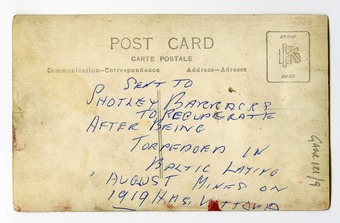 POST CARD
CARTE POSTALE
Communication—Correspondence
Address—Adresse
STAMP
HERE
SENT TO
SHOTLEY BARRACKS
TO RECUPERATE
AFTER BEING
TORPEDOED IN
BALTIC LAYING
AUGUST MINES ON
1919 H.M.S. VITTORIA